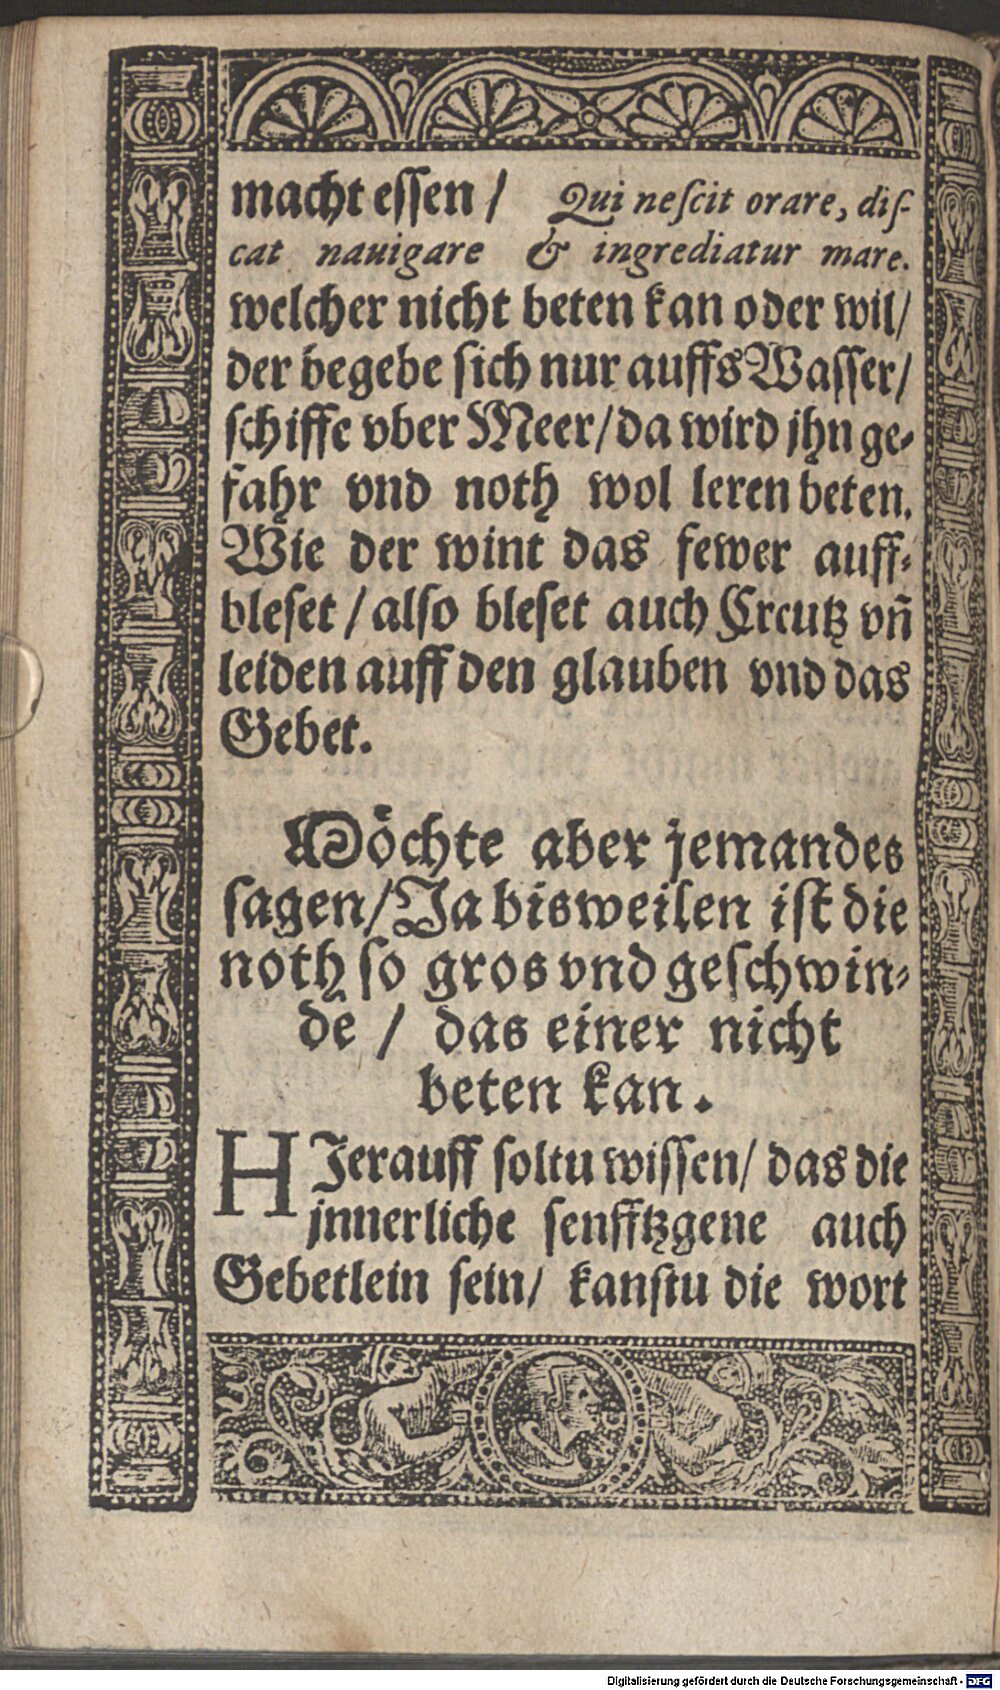 macht essen / Qui neſcit orare, diſ-
cat nauigare & ingrediatur mare.
welcher nicht beten kan oder wil/
der begebe ſich nur auffs Waſſer/
ſchiffe vber Meer/da wird jhn ge-
fahr vnd noth wol leren beten.
Wie der wint das fewer auff-
bleſet / alſo bleſet auch Creutz vñ
leiden auff den glauben vnd das
Gebet.
Möchte aber jemandes
ſagen/Ja bisweilen iſt die
noth ſo gros vnd geſchwin-
de / das einer nicht
beten kan.
HJerauff ſoltu wiſſen/ das die
jnnerliche ſenfftzgene auch
Gebetlein ſein/ kanſtu die wort
Digitalisierung gefördert durch die Deutsche Forschungsgemeinschaft - DFG